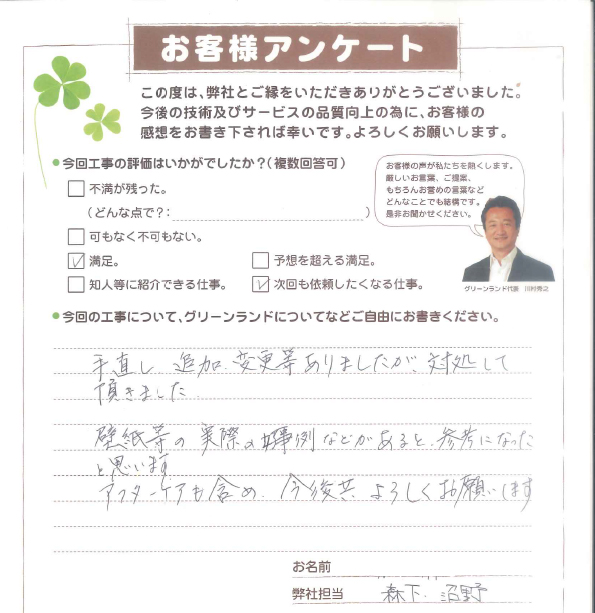 お客様アンケート
この度は、弊社とご縁をいただきありがとうございました。
今後の技術及びサービスの品質向上の為に、お客様の
感想をお書き下されば幸いです。よろしくお願いします。
●今回工事の評価はいかがでしたか?(複数回答可)
不満が残った。
(どんな点で?: )
可もなく不可もない。
満足。
予想を超える満足。
知人等に紹介できる仕事。
次回も依頼したくなる仕事。
お客様の声が私たちを熱くします。
厳しいお言葉、ご提案、
もちろんお誉めの言葉など
どんなことでも結構です。
是非お聞かせください。
グリーンランド代表
●今回の工事について、グリーンランドについてなどご自由にお書きください。
手直し、追加、変更等ありましたが、対処して
頂きました。
壁紙等の実際の事例などがあると、参考になった
と思います
アフターケアも含め、今後共よろしくお願いします
お名前
弊社担当 森下、沼野